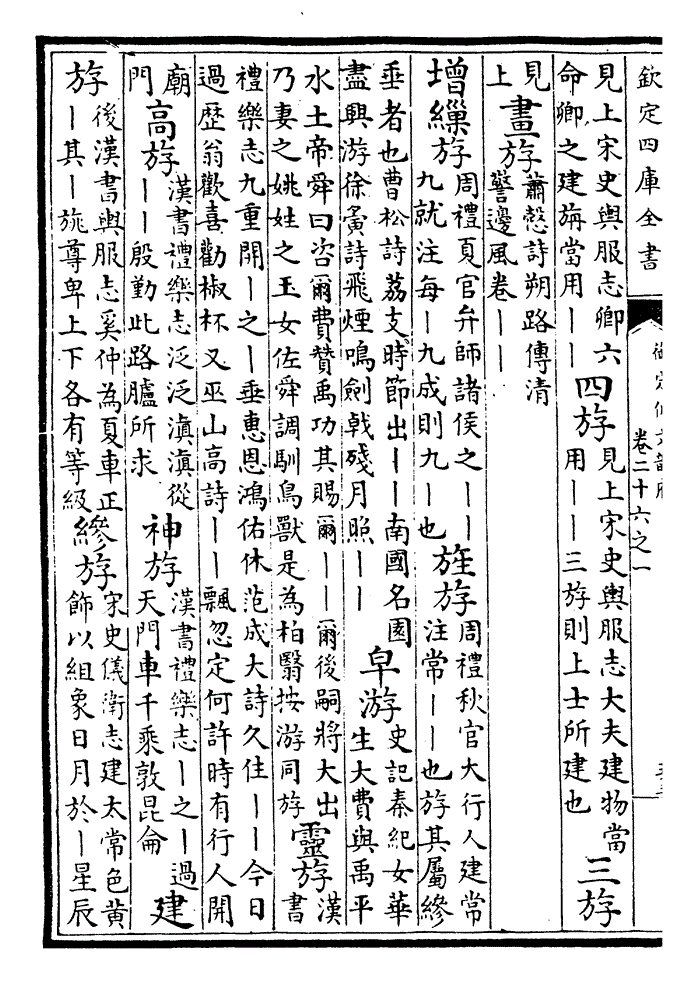 欽定四庫全書
卷二十六之一
見上宋史輿服志卿六
命卿之建旃當用丨丨
四斿
見上宋史輿服志大夫建物當
用丨丨三斿則上士所建也
三斿
見
上
畫斿
蕭慤詩朔路傳清
警邊風卷丨丨
增繅斿
周禮夏官弁師諸侯之丨丨
九就注每丨九成則九丨也
旌斿
周禮秋官大行人建常
注常丨丨也斿其屬縿
垂者也曹松詩荔支時節出丨丨南國名園
盡興游徐夤詩飛煙鳴劍戟殘月照丨丨
皁游
史記秦紀女華
生大費與禹平
水土帝舜曰咨爾費贊禹功其賜爾丨丨爾後嗣將大出
乃妻之姚姓之玉女佐舜調馴鳥獸是為柏翳按游同斿
靈斿
漢
書
禮樂志九重開丨之丨垂惠恩鴻佑休范成大詩久住丨丨今日
過歷翁歡喜勸椒杯又巫山高詩丨丨飄忽定何許時有行人開
廟
門
高斿
漢書禮樂志泛泛滇滇從
丨丨殷勤此路臚所求
神斿
漢書禮樂志丨之丨過
天門車千乘敦昆侖
建斿
後漢書輿服志奚仲為夏車正
丨其丨旐尊卑上下各有等級
縿斿
宋史儀衛志建太常色黃
飾以組象日月於丨星辰